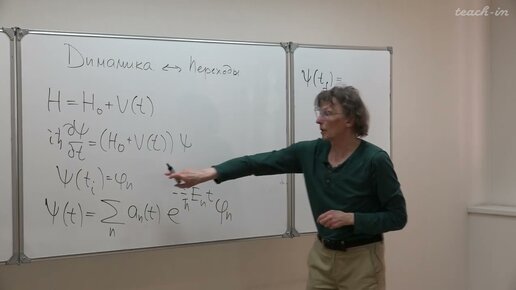 teach-in
Динамика ↔ Переходы
H = H₀ + V(t)
iħ ∂ψ/∂t = (H₀ + V(t)) ψ
ψ(tᵢ) = φₙ
ψ(t) = ∑ₙ aₙ(t) e^(-i/ħ Eₙt) φₙ
ψ(t₁) =